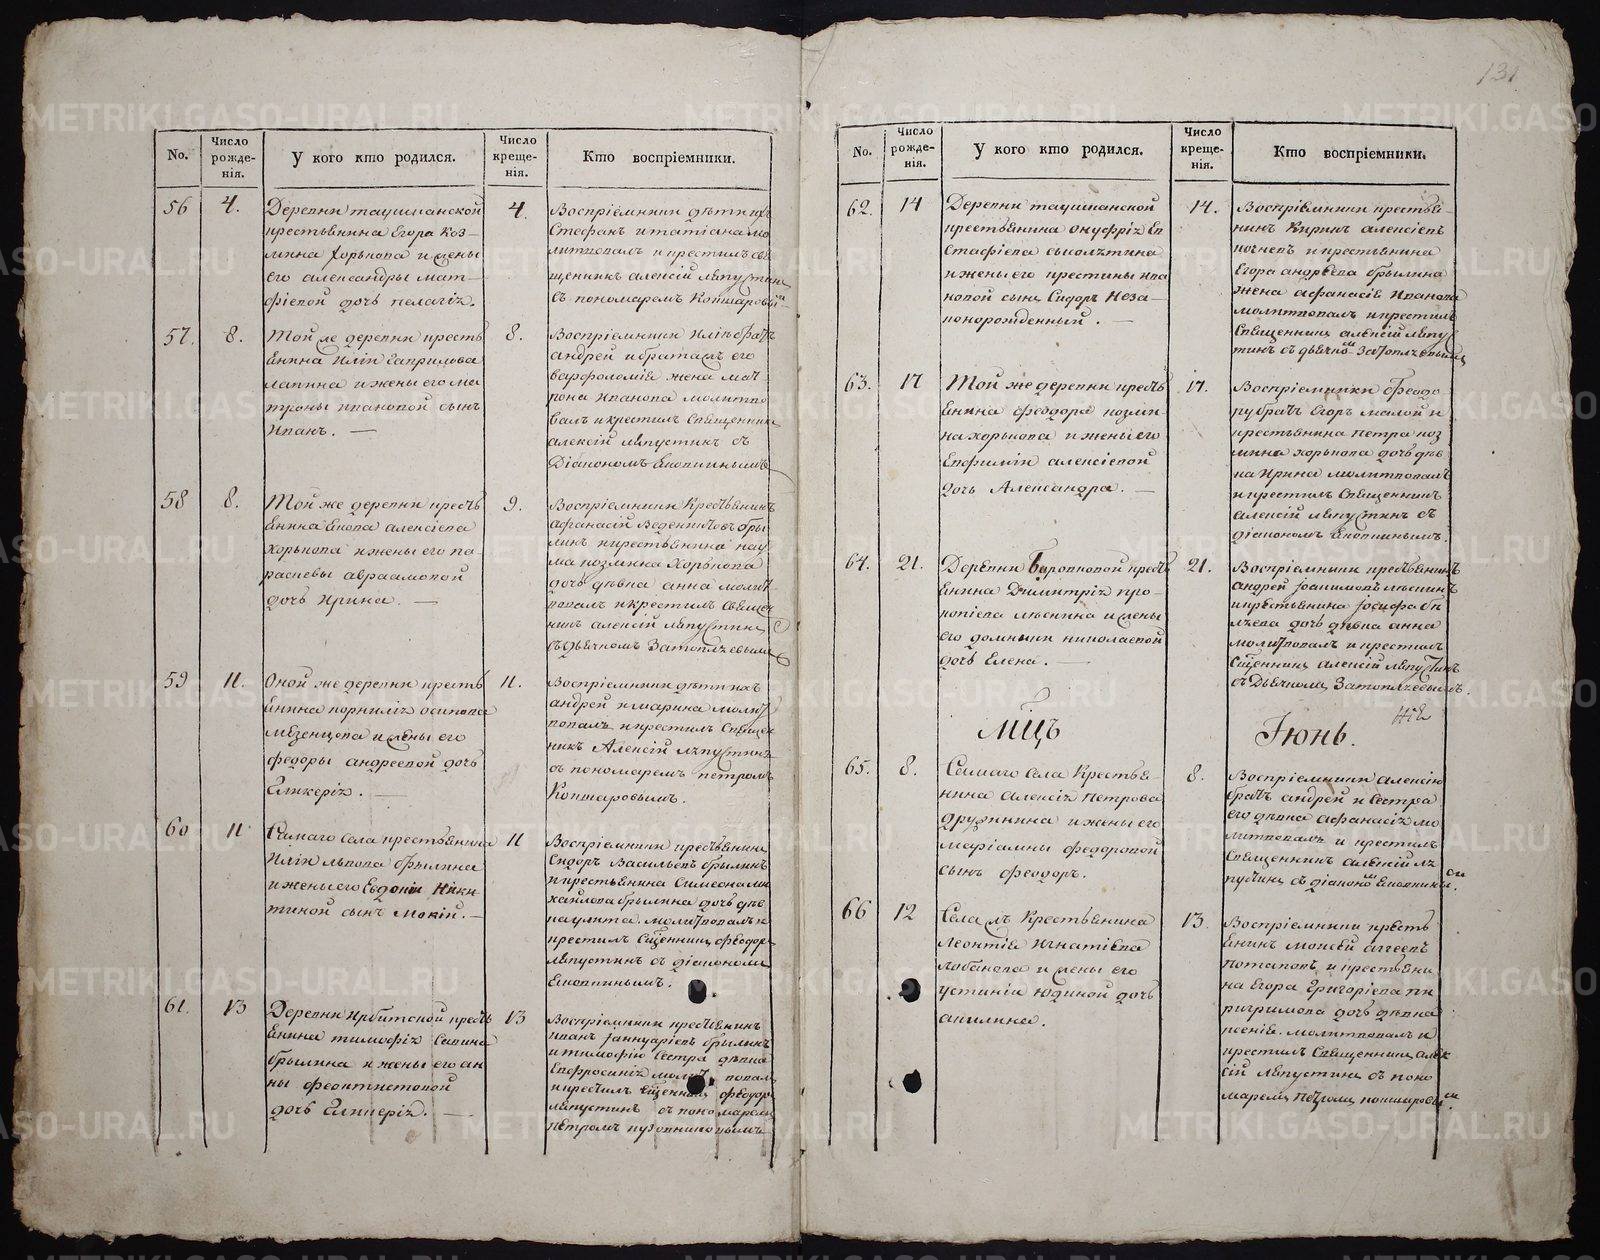 131
No.
Число рожде- нія.
У кого кто родился.
Число креще- нія.
Кто воспріемники.
56
4.
Деревни таушканской
крестьянина Егора Коз-
мина хорькова и жены
его александры мат-
фіевой дочь пелагія.
4.
Воспріемники дѣти ихъ
Стефанъ и татіана мо
литвовалъ и крестилъ свя
щенникъ алексій Ляпустинъ
съ пономаремъ Кокшаровы
57.
8.
Той же деревни кресть
янина Иліи Гаврилова
лапина и жены его ма
троны ивановой сынъ
Иванъ. —
8.
Воспріемники Иліи братъ
андрей и брата его
варфоломія жена мат
рона Иванова молитво
валъ и крестилъ Священникъ
алексій Ляпустинъ съ
Діакономъ
58
8.
Той же деревни кресть
янина Якова алексіева
хорькова и жены его па-
расковы авраамовой
дочь Ирина. —
9.
Воспріемники Крестьянинъ
афанасій
линъ и крестьянина нау
ма козмина Хорькова
дочь дѣвка анна молит
вовалъ и крестилъ Священ
никъ алексій Ляпустинъ
съ дьячкомъ Затопляевымъ
59
11.
Оной же деревни кресть
янина корнилія осипова
мезенцова и жены его
федоры андреевой дочь
Гликерія. —
11.
Воспріемники дѣти ихъ
андрей и марина молит
вовалъ и крестилъ Священ
никъ Алексій Ляпустинъ
съ пономаремъ петромъ
Кокшаровымъ.
60
11
Самаго села крестьянина
Иліи львова брылина
и жены его Евдокіи Ники
тиной сынъ мокій. —
11
Воспріемники крестьянинъ
Сидоръ Васильевъ брылинъ
и крестьянина Симеона ми
хайлова брылина дочь дѣв
ка улита. молитвовалъ и
крестилъ Священникъ феодоръ
Ляпустинъ съ діакономъ
61.
13
Деревни Ирбитской кресть
янина тимофія Савина
брылина и жены его ан
ны феоктистовой
дочь Гликерія. —
13
Воспріемники крестьянинъ
иванъ іаннуаріевъ брылинъ
и тимофію сестра дѣвка
Евфросинія молит вовалъ
и крестилъ Священникъ феодоръ
Ляпустинъ съ пономаремъ
петромъ
No.
Число рожде- нія.
У кого кто родился.
Число креще- нія.
Кто воспріемники.
62.
14
Деревни таушканской
крестьянина онуфрія Ев
стафіева
и жены его крестины ива
новой сынъ Сидоръ Неза-
коннорожденный. —
14.
Воспріемники крестья-
нинъ Кирикъ алексіевъ
и крестьянина
Егора андреева брылина
жена афанасія Иванова
молитвовалъ и крестилъ
Священникъ алексій Ляпус
тинъ съ дьячкомъ Затопляевымъ
63.
17
Той же деревни кресть
янина феодора козми-
на хорькова и жены его
Евфиміи алексіевой
дочь Александра. —
17.
Воспріемники феодо-
ру братъ Егоръ малой и
крестьянина петра коз
мина хорькова дочь дѣв
ка Ирина молитвовалъ
и крестилъ Священникъ
алексій Ляпустинъ съ
діакономъ
64.
21.
Деревни Боровковой кресть
янина Димитрія про-
копіева и жены
его домники николаевой
дочь Елена. —
21.
Воспріемники крестьянинъ
андрей іоакимовъ
и крестьянина іосифа бѣ
ляева дочь дѣвка анна
молитвовалъ и крестилъ
Священникъ алексій Ляпустинъ
съ Дьячкомъ Затопляевымъ.
мцъ
Іюнь.
65.
8.
Самаго села Крестья-
нина алексія петрова
дружинина и жены его
маріамны феодоровой
сынъ феодоръ.
8.
Воспріемники алексію
братъ андрей и сестра
его дѣвка афанасія мо
литвовалъ и крестилъ
Священникъ алексій Ля
пустинъ съ діакономъ
66
12
Села Крестьянина
леонтія Игнатіева
лобанова и жены его
устиніи юдиной дочь
акилина.
13.
Воспріемники кресть
янинъ моисей аггеевъ
потаповъ и крестьяни
на Егора григоріева пи
лигримова дочь дѣвка
ксенія. молитвовалъ и
крестилъ Священникъ алек
сій Ляпустинъ съ поно
маремъ петромъ кокшаровы
METRIKI.GASO-URAL.RU